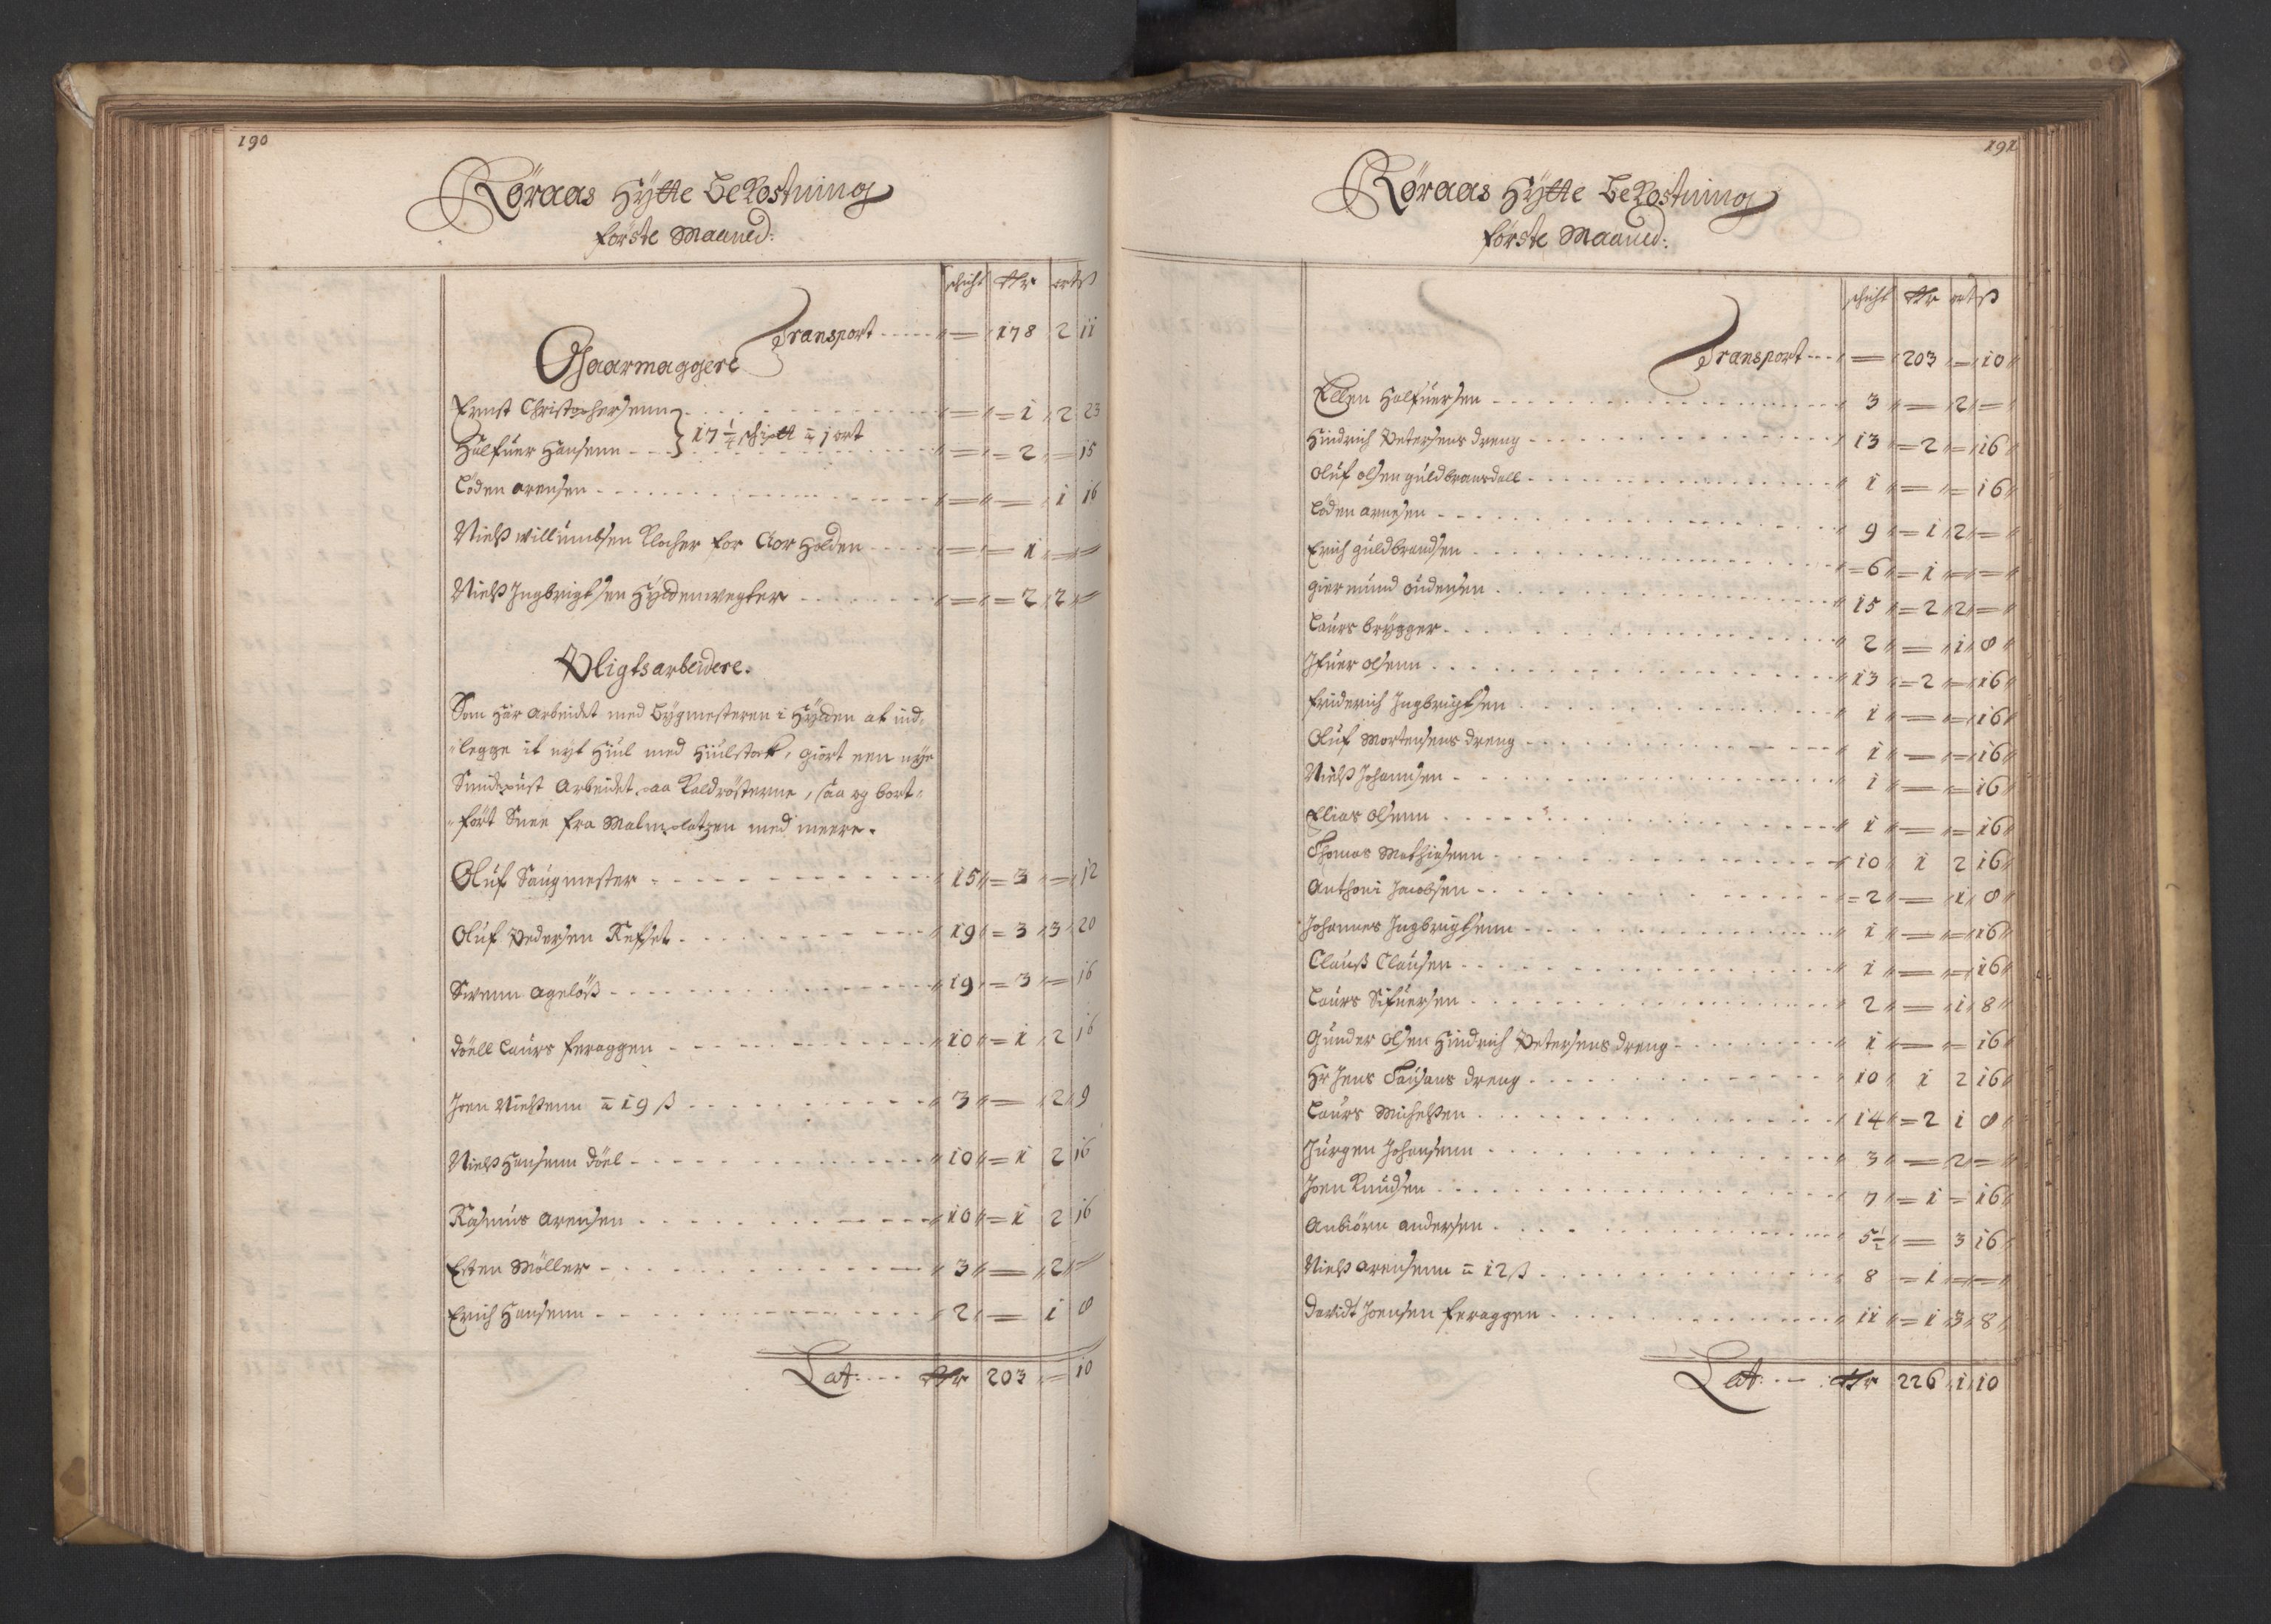 190
Røraas Hÿtte Bekostning
første Maaned:
schicht Rdr ort ß
Transport 178 2 11
Gaarmaggere
Ernst Christophersenn 1 2 23
17 ½ schigtt a 1 ort
Halfuer Hansenn 2 15
Loden arensen 1 16
Nielß Willumbsen Klocher for Aor Holden 1
Nielß Ingbrigtsen Hÿddenvegter 2 2
Pligtsarbeidere.
Som Har arbeidet med Bÿgmesteren i Hÿdden at ind
legge it nÿt Hiul med Hiulstock, giort een nÿe
Smidepust Arbeidet paa Kaldrösterne, saa og bort
fört Snee fra Malmplatzen med meere.
Oluf Saugmester 15 3 12
Oluf Pedersen Refset 19 3 3 20
Swenn Agelöß 19 3 16
döell Laurs feraggen 10 1 2 16
Joen Nielßenn a 19 ß 3 2 9
Nielß Hansenn döel 10 1 2 16
Rasmus Arensen 10 1 2 16
Esten Möller 3 2
Erich Hansenn 2 1 8
Lat: Rdr 203 10
191
Røraas Hÿtte Bekostning
første Maaned:
schicht Rdr ort ß
Transport 203 10
Ellen Halfuersen 3 2
Hindrich Petersens dreng 13 2 16
Oluf olsen guldbransdall 1 16
Loden arnesen 9 1 2
Erich guldbrandsen 6 1
giermund oudensen 15 2 2
Laurs brÿgger 2 1 8
Ifuer olsenn 13 2 16
friderich Ingbrigtsen 1 16
Oluf Mortensens dreng 1 16
Nielß Johannsen 1 16
Elias olsenn 1 16
Thomas Mathiesenn 10 1 2 16
Anthoni Jacobsen 2 1 8
Johannes Ingbrigtsenn 1 16
Clauß Clausen 1 16
Laurs Sifuersen 2 1 8
Gunder olsen Hindrich Petersens dreng 1 16
Hr Jens Tausans dreng 10 1 2 16
Laurs Michelßen 14 2 1 8
Jürgen Johansenn 3 2
Joen Knudsen 7 1 16
Anbiörn andersen 5½ 3 16
Nielß Arensenn a 12 ß 8 1
Davidt Joensen feraggen 11 1 3 8
Lat: Rdr 226 1 10